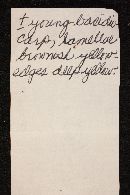 + young basidio-
carp, lamellae
brownish yellow-
edges deep yellow.